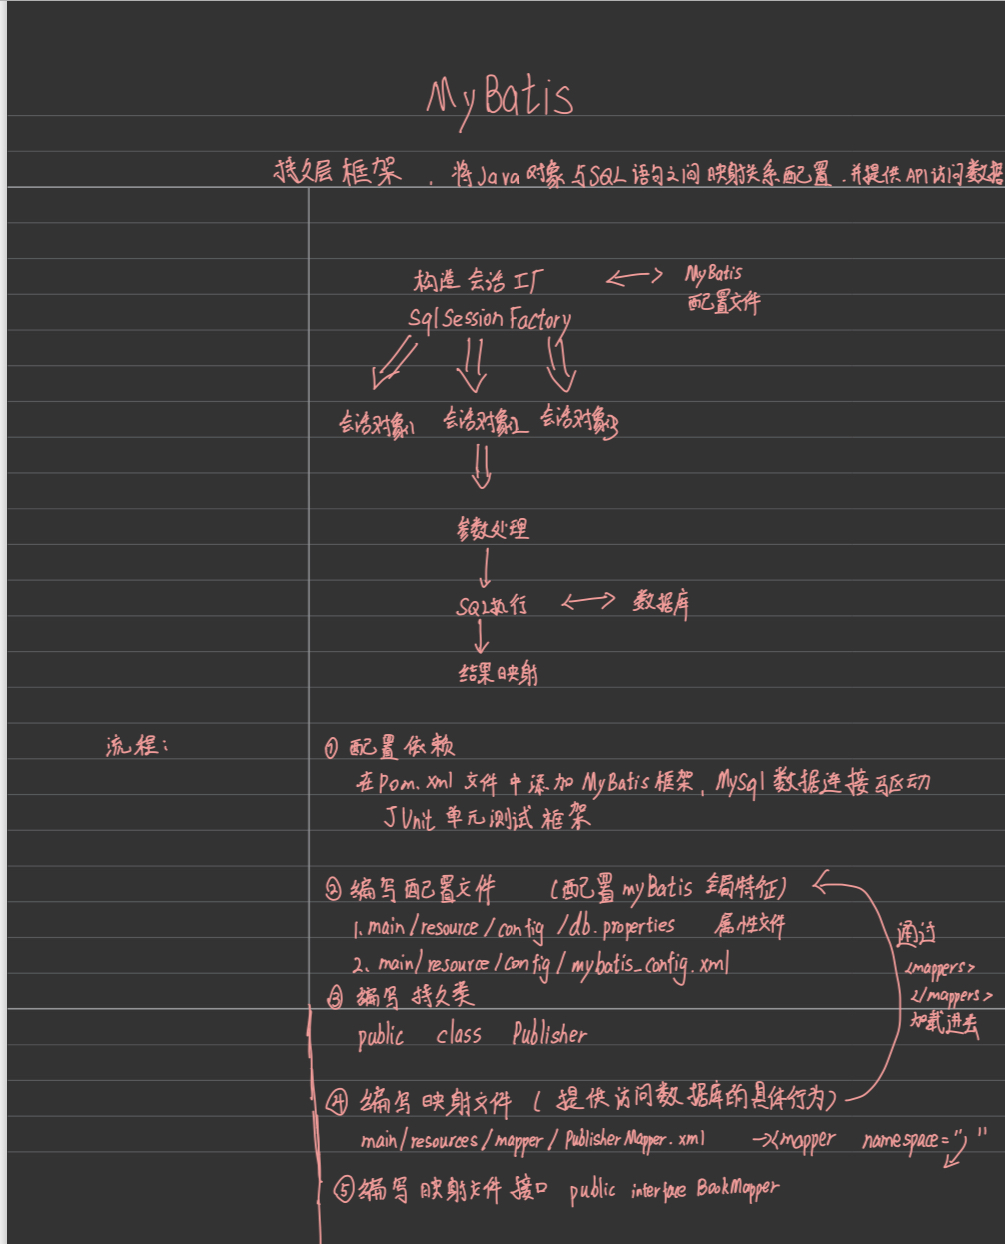 MyBatis
持久层框架，将Java对象与SQL语句之间映射关系配置.并提供API访问数据
构造会话工厂 MyBatis
配置文件
SqlSessionFactory
会话对象1 会话对象2 会话对象3
参数处理
SQL执行 数据库
结果映射
流程：
① 配置依赖
在pom.xml文件中添加MyBatis框架，MySql数据连接驱动
JUnit单元测试框架
② 编写配置文件 (配置myBatis 全局特征)
1.main/resource/config/db.properties 属性文件
2、main/resource/config/mybatis_config.xml
通过
<mappers>
</mappers>
加载进去
③ 编写持久类
public class Publisher
④ 编写映射文件 ( 提供访问数据库的具体行为)
main/resources/mapper/PublisherMapper.xml <mapper namespace=" "
⑤编写映射文件接口 public interface BookMapper